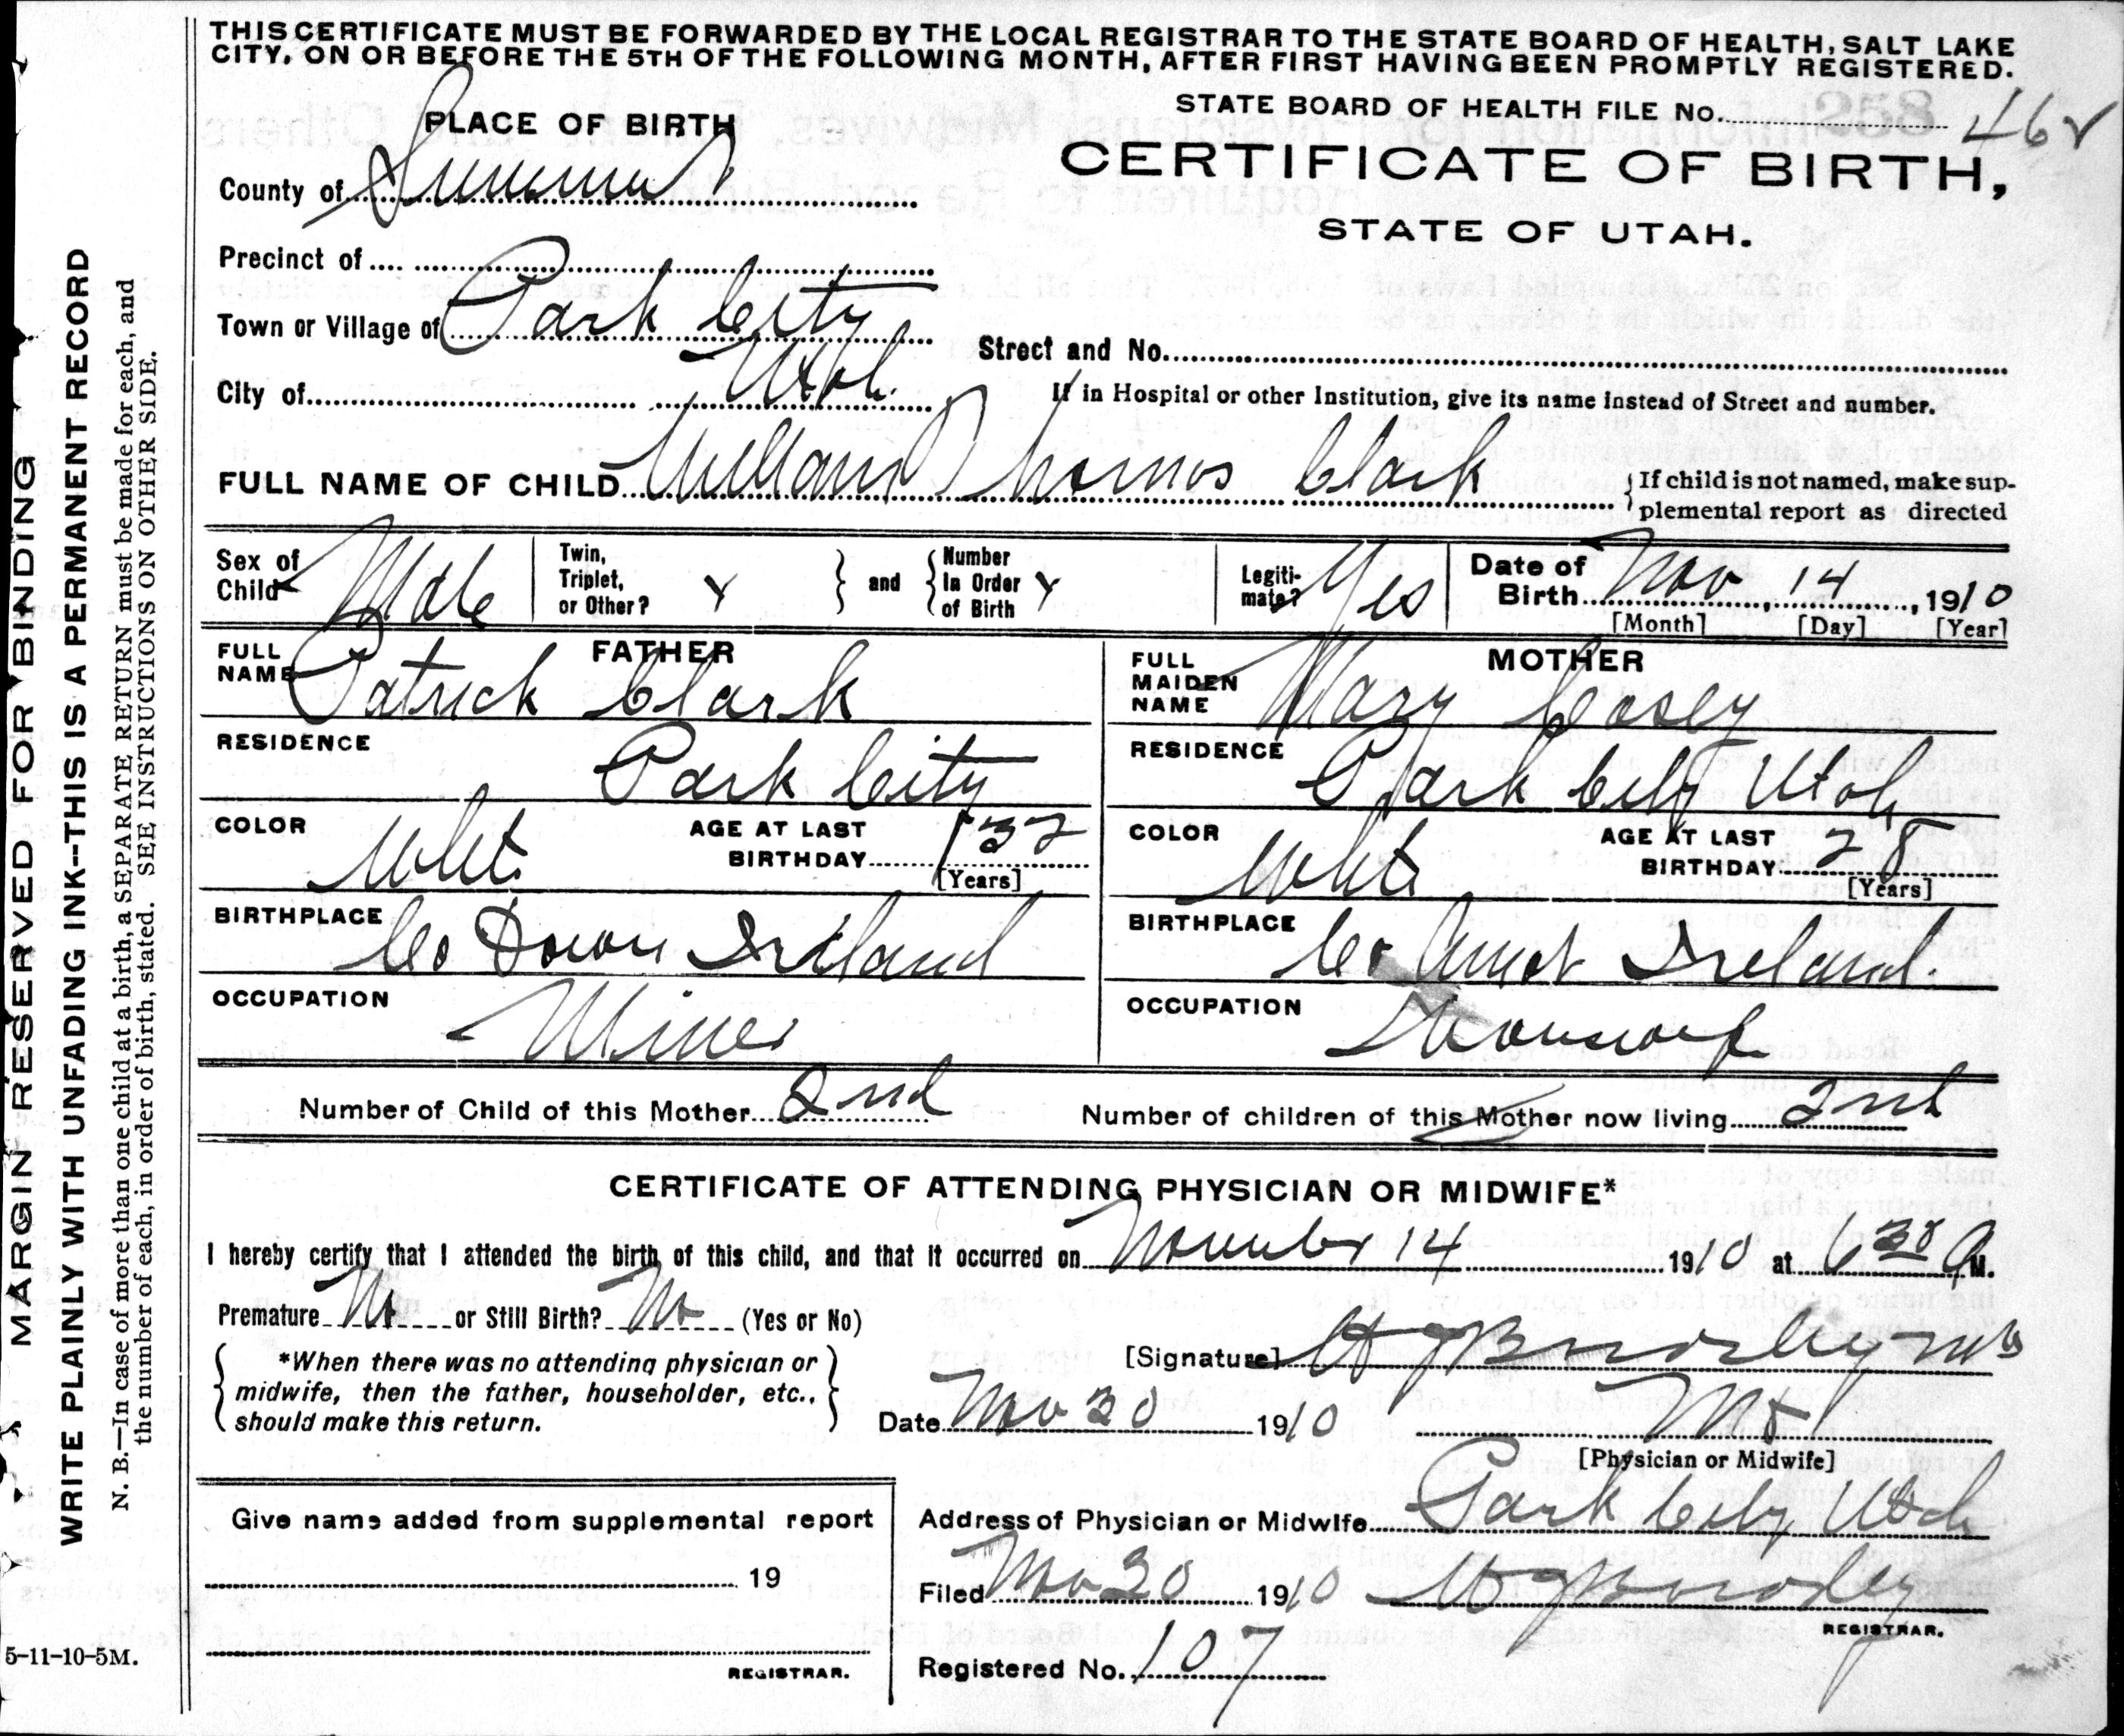 THIS CERTIFICATE MUST BE FORWARDED BY THE LOCAL REGISTRAR TO THE STATE BOARD OF HEALTH, SALT LAKE
CITY, ON OR BEFORE THE 5TH OF THE FOLLOWING MONTH, AFTER FIRST HAVING BEEN PROMPTLY REGISTERED.
STATE BOARD OF HEALTH FILE No. 462
PLACE OF BIRTH
CERTIFICATE OF BIRTH,
STATE OF UTAH.
County of Summit
Precinct of
Town or Village of Park City
Street and No.
City of Utah
If in Hospital or other Institution, give its name instead of Street and number.
FULL NAME OF CHILD William Thomas Clark
If child is not named, make sup-
plemental report as directed
Sex of Child Male
Twin, Triplet, or Other?
and
Number In Order of Birth
Legiti-mate? Yes
Date of Birth Nov 14, 1910
[Month] [Day] [Year]
FATHER
FULL NAME Patrick Clark
RESIDENCE Park City
COLOR White AGE AT LAST BIRTHDAY 32
[Years]
BIRTHPLACE Co Down Ireland
OCCUPATION Miner
MOTHER
FULL MAIDEN NAME Mary Cosey
RESIDENCE Park City Utah
COLOR White AGE AT LAST BIRTHDAY 28
[Years]
BIRTHPLACE Co Ireland
OCCUPATION
Number of Child of this Mother 2nd
Number of children of this Mother now living 2nd
CERTIFICATE OF ATTENDING PHYSICIAN OR MIDWIFE*
I hereby certify that I attended the birth of this child, and that it occurred on November 14 1910 at 6 30 A M.
Premature No or Still Birth? No (Yes or No)
*When there was no attending physician or
midwife, then the father, householder, etc.,
should make this return.
[Signature]
Date Nov 30 1910
[Physician or Midwife]
Give name added from supplemental report
19
REGISTRAR.
Address of Physician or Midwife Park City Utah
Filed Nov 30 1910
REGISTRAR.
Registered No. 107
MARGIN RESERVED FOR BINDING
WRITE PLAINLY WITH UNFADING INK--THIS IS A PERMANENT RECORD
N. B.—In case of more than one child at a birth, a SEPARATE RETURN must be made for each, and
the number of each, in order of birth, stated. SEE INSTRUCTIONS ON OTHER SIDE.
5-11-10-5M.